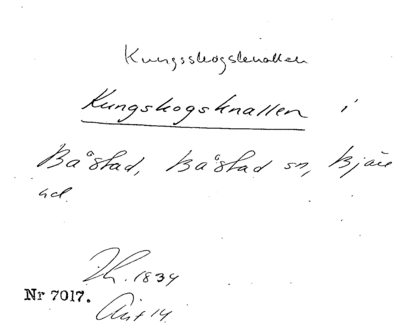 Kungsskogsknallen
Kungskogsknallen i
Båstad, Båstad sn, Bjäre
hd.
Th. 1834
Nr 7017.
Ant 14